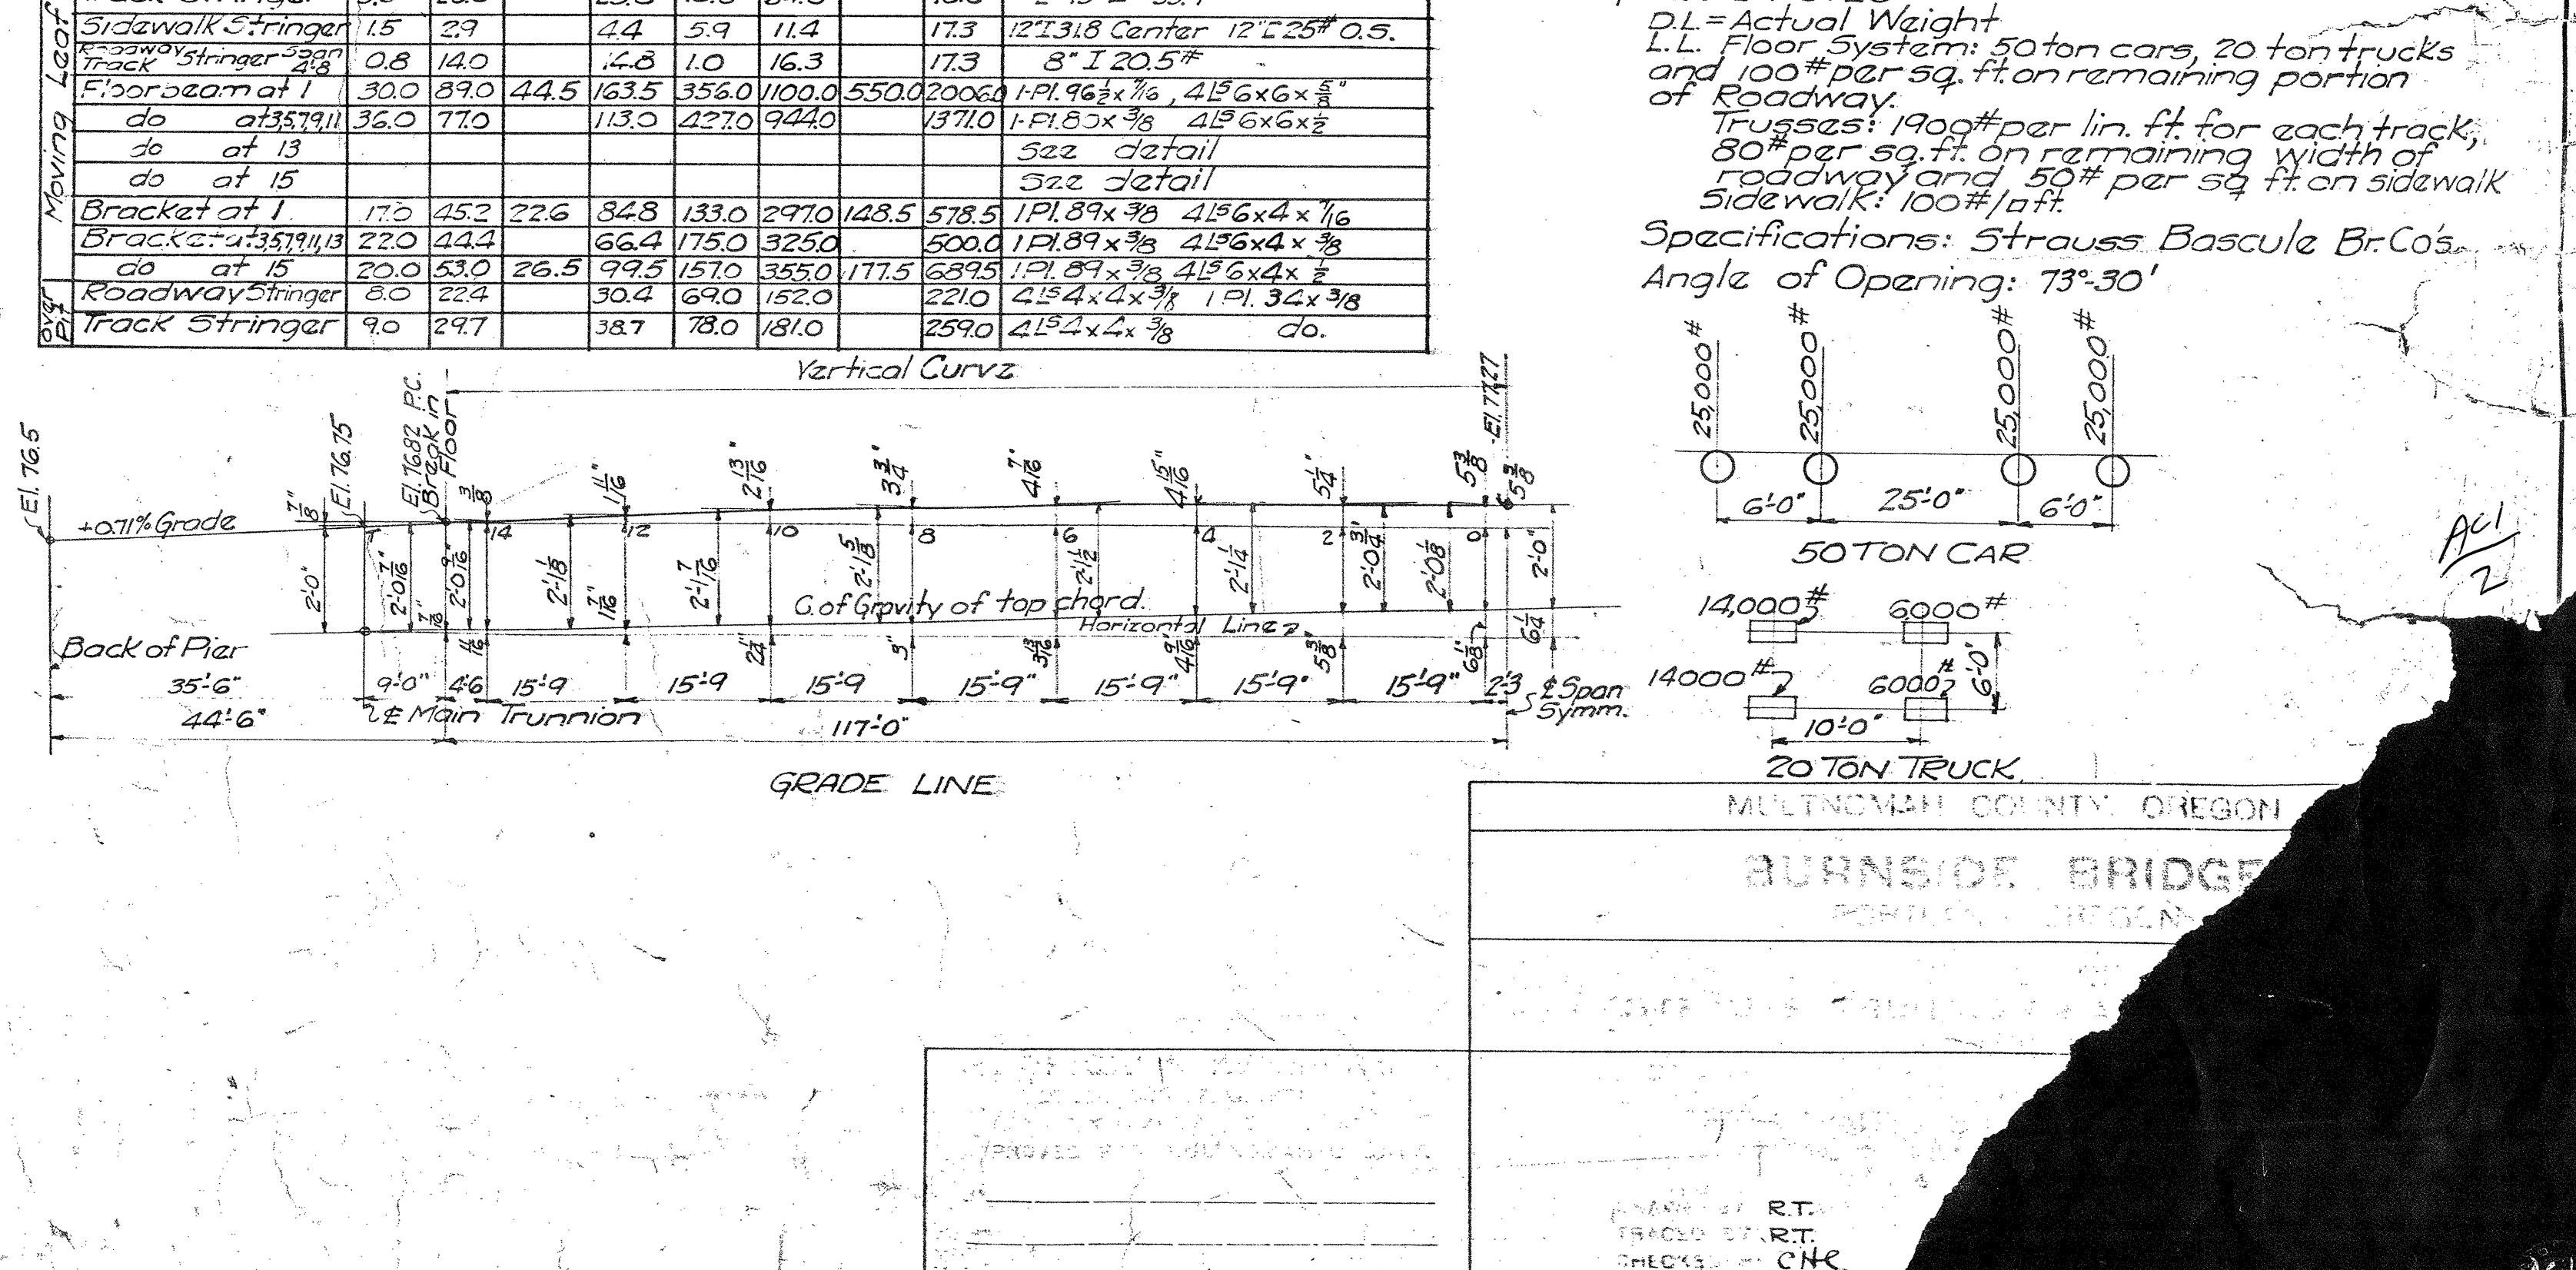 Moving Leaf
Sidewalk Stringer 1.5 2.9 4.4 5.9 11.4 17.3 12"I31.8 Center 12"C25# O.S.
Roadway Track Stringer Span 4'8 0.8 14.0 14.8 1.0 16.3 17.3 8" I 20.5#
Floorbeam at 1 30.0 89.0 44.5 163.5 356.0 1100.0 550.0 2006.0 1-Pl. 96½ x 7/16, 4Ls 6x6x5/8"
do at 3,5,7,9,11 36.0 77.0 113.0 427.0 944.0 1371.0 1-Pl. 80x 3/8 4Ls 6x6x½
do at 13 See detail
do at 15 See detail
Bracket at 1 17.0 45.2 22.6 84.8 133.0 297.0 148.5 578.5 1 Pl. 89x 3/8 4Ls 6x4x 7/16
Bracket at 3,5,7,9,11,13 22.0 44.4 66.4 175.0 325.0 500.0 1 Pl. 89x 3/8 4Ls 6x4x 3/8
do at 15 20.0 53.0 26.5 99.5 157.0 355.0 177.5 689.5 1 Pl. 89x 3/8 4Ls 6x4x ½
over Pit
Roadway Stringer 8.0 22.4 30.4 69.0 152.0 221.0 4Ls 4x4x3/8 1 Pl. 34x 3/8
Track Stringer 9.0 29.7 38.7 78.0 181.0 259.0 4Ls 4x4x 3/8 do.
D.L.=Actual Weight
L.L. Floor System: 50 ton cars, 20 ton trucks
and 100# per sq. ft. on remaining portion
of Roadway.
Trusses: 1900# per lin. ft. for each track,
80# per sq. ft. on remaining width of
roadway and 50# per sq ft. on sidewalk
Sidewalk: 100#/□ft.
Specifications: Strauss Bascule Br. Co's.
Angle of Opening: 73°-30'
25,000# 25,000# 25,000# 25,000#
6'-0" 25'-0" 6'-0"
50 TON CAR
14,000# 6000#
14000# 6000#
6'-0"
10'-0"
20 TON TRUCK
AC1
2
Vertical Curve
El. 76.5
El. 76.75
El. 76.82 P.C.
Break in
Floor
El. 77.27
+0.71% Grade
7/8" 3/8 1 11/16" 2 13/16" 3 3/4" 4 7/16" 4 15/16" 5 1/4" 5 3/8 5 3/8
14 12 10 8 6 4 2 0
2'-0" 2'-0 7/16" 2'-0 9/16" 2'-1 1/8 2'-1 7/16 2'-1 5/8 2'-1 1/2 2'-1 1/4 2'-0 3/4" 2'-0 1/8 2'-0"
C. of Gravity of top chord.
Horizontal Line
7/16 11/16 1 7/16" 2 1/4" 3" 3 13/16 4 9/16 5 3/8 6 1/8" 6 1/4
Back of Pier
35'-6" 9'-0" 4'6 15'-9 15'-9 15'-9 15'-9" 15'-9" 15'-9" 15'-9" 2'-3
℄ Span
Symm.
℄ Main Trunnion
44'-6" 117'-0"
GRADE LINE
MULTNOMAH COUNTY OREGON
BURNSIDE BRIDGE
PORTLAND OREGON
R.T.
TRACED BY R.T.
CHECKED CHC